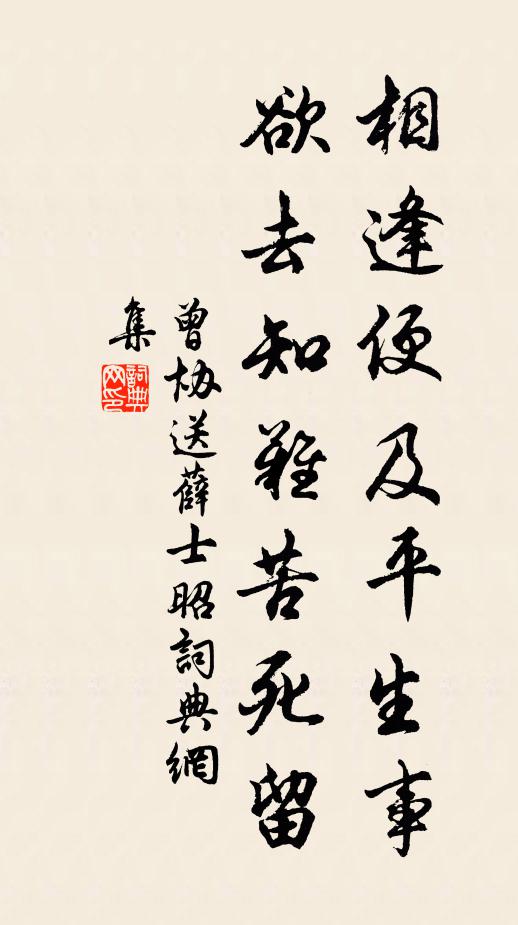 相逢便及平生事
欲去知難苦死留
曾協送薛士昭詞典網
集
詞典網印